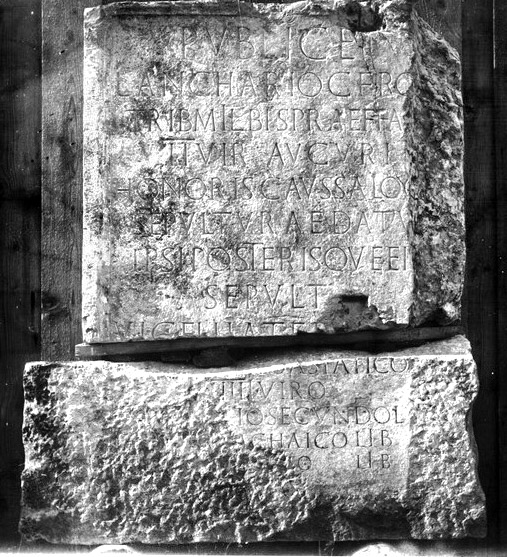 PVBLICE
L ANCHARIO C F RO
TRIB MIL BIS PRAEF FA
II VIR AVGVRI
HONORIS CAVSSA LOC
SEPVLTVRAE DATV
IPSI POSTERISQVE EI
SEPVLT
STATICO
IIII VIRO
IO SECVNDO L
CHAICO LIB
IO LIB